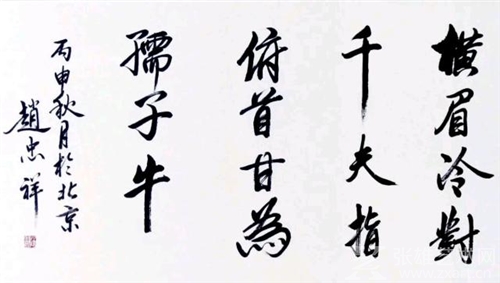 橫眉冷對
千夫指
俯首甘為
孺子牛
丙申秋月於北京
趙忠祥